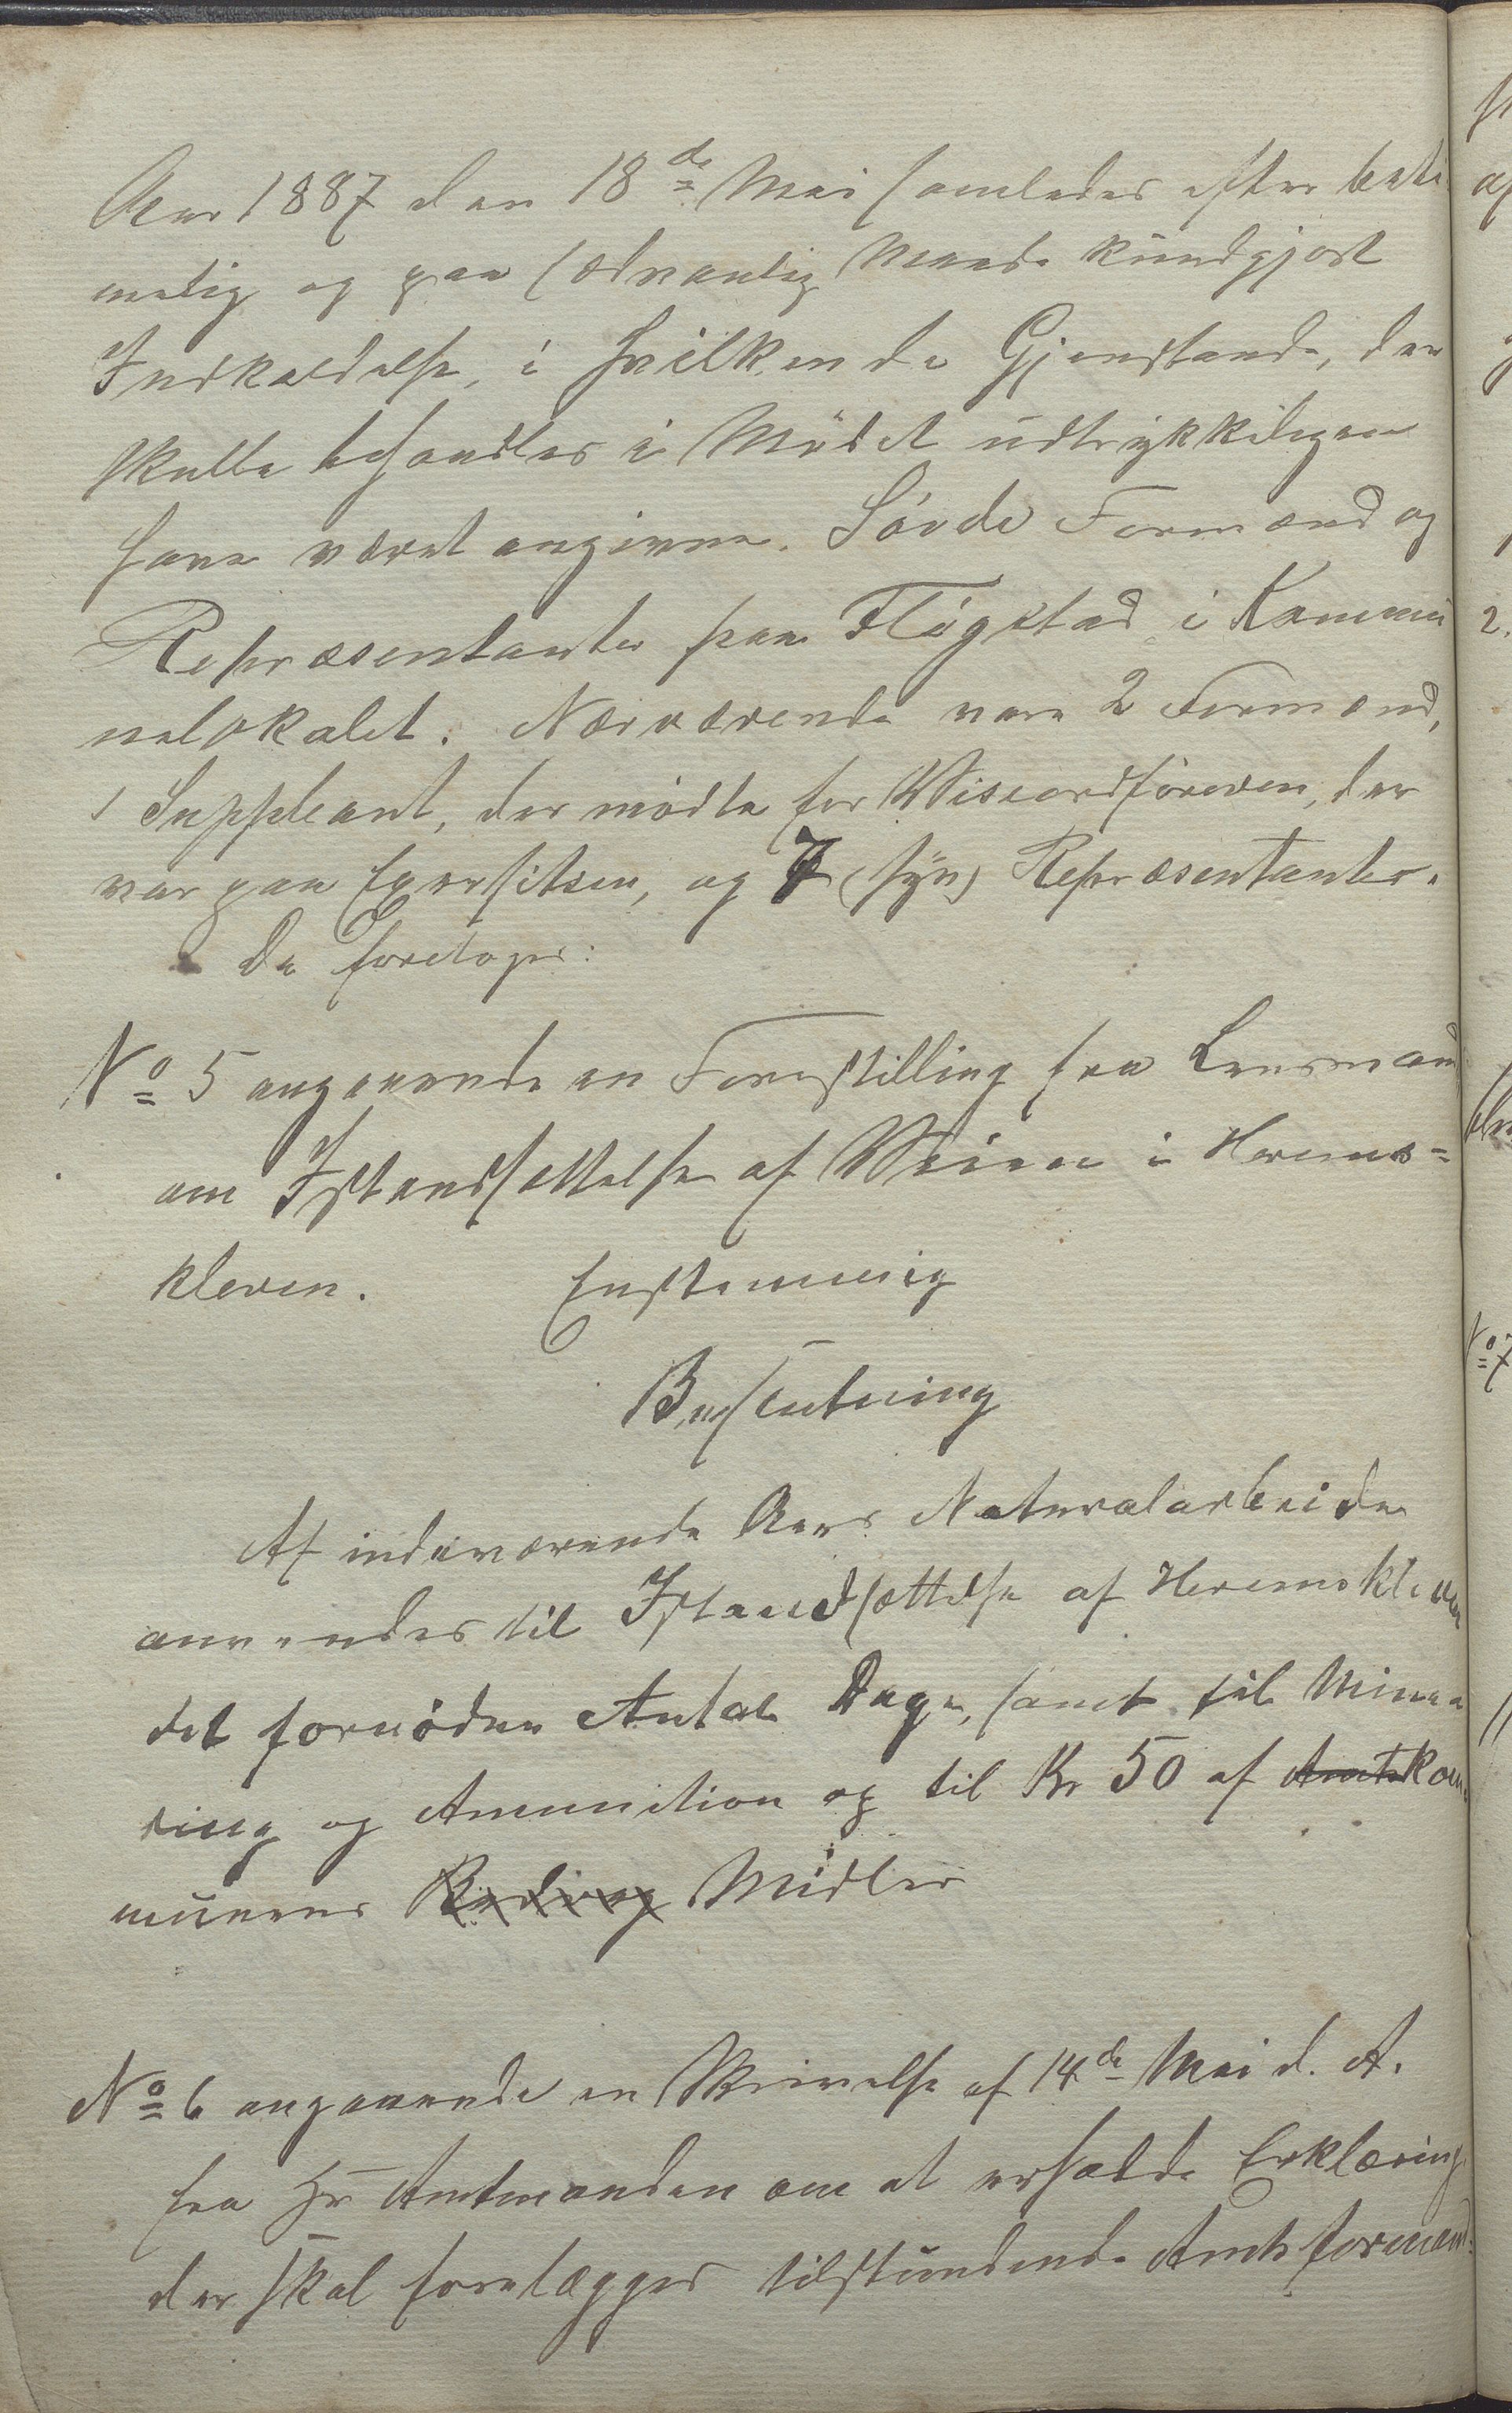 Aar 1887 den 18de Mai samledes efter beti
melig og paa sædvanlig Maade kundgjort
Indkaldelse, i hvilken de Gjenstande, der
skulle behandles i Mødet udtrykkeligen
have været angivne. Søvde Formænd og
Repræsentanter paa Fløgstad i Kommu
nelokalet. Nærværende vare 2 Formænd,
1 Suppleant, der mødte for Viseordføreren, der
var paa Exersitsen, og 7 (syv) Repræsentanter.
Da foretoges:
No 5 angaaende en Forestilling fra Lensmand
om Istandsættelse af Veien i Herems=
kleven. Enstemmig
Beslutning
Af indeværende Aars Naturalarbeide
anvendes til Istandsættelse af Heremskleven
det fornødne Antal Dage, samt til Mine
ring og Amunition og til Kr 50 af Amts Kom
munens Midler
No 6 angaaende en Skrivelse af 14de Mai d. A.
fra Hr Amtmanden om at erholde Erklæring
der skal forelægges tilstundende Amtsformand=